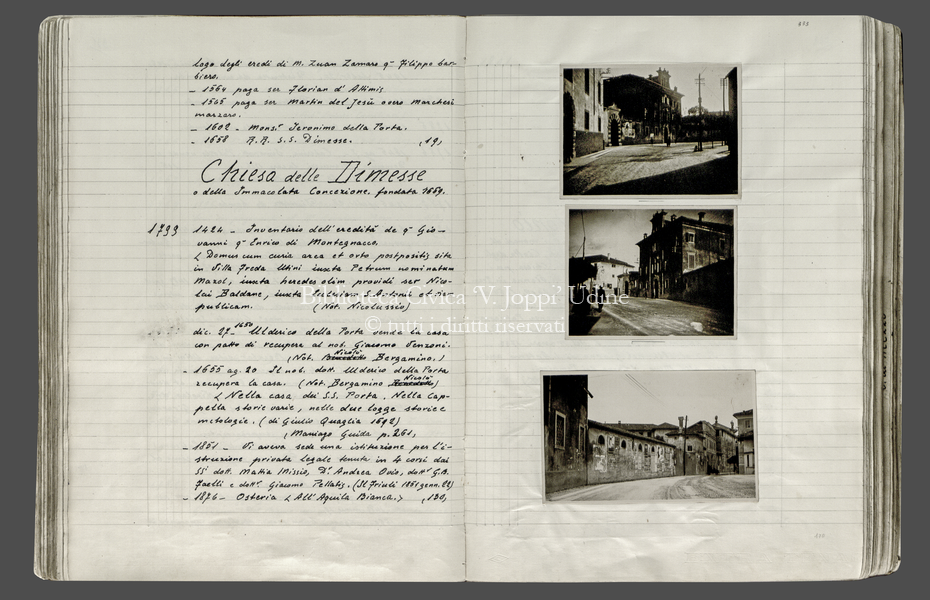 logo degli eredi di m. Zuan Zamaro qᵐ Filippo bar-
biero.
- 1564 paga ser Florian d' Attimis
- 1565 paga ser Martin del Jesù overo Marchesi
marzaro.
- 1602 - Mons.r Jeronimo della Porta.
- 1658 R.R. S.S. Dimesse. (19)
Chiesa delle Dimesse
o della Immacolata Concezione. fondata 1669.
1799 1424 - Inventario dell'eredità de qᵐ Gio-
vanni qᵐ Enrico di Montegnacco.
< Domus cum curia area et orto postpositis sita
in Villa Freda Utini iuxta Petrum nominatum
Mazol, iuxta heredes olim providi ser Nico-
lai Baldane, iuxta S. Antonii et
publicam. (Not. Nicolussio)
dic. 27 1650 Ulderico della Porta vende la casa
con patto di recupera al nob. Giacomo Venzoni.
(Not. Benedetto Nicolò Bergamino.)
- 1655 ag. 20 Il nob. dott. Ulderico della Porta
recupera la casa. (Not. Bergamino Benedetto Nicolò)
< Nella casa dei S.S. Porta. Nella Cap-
pella storie varie, nelle due logge storie e
mitologie. (di Giulio Quaglia 1692)
(Maniago Guida p. 261)
- 1851 - Vi aveva sede una istituzione per l'i-
struzione privata legale tenuta in 4 corsi dai
SS.i dott. Mattia Missio, D.r Andrea Ovio, dott.r G.B.
Faelli e dott.r Giacomo Pellatis. (Il Friuli 1851 genn. 22)
- 1876 - Osteria < All'Aquila Bianca.> (130)
Biblioteca Civica 'V. Joppi' Udine
© tutti i diritti riservati